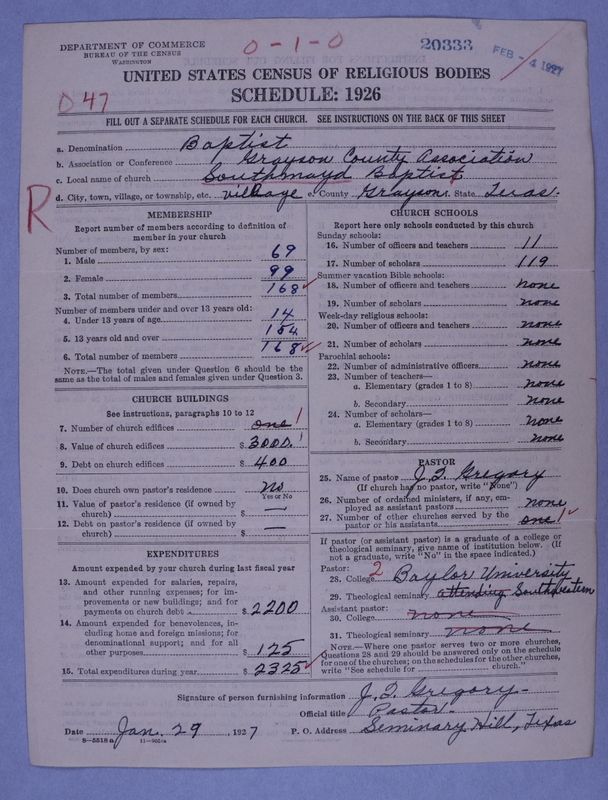 DEPARTMENT OF COMMERCE
BUREAU OF THE CENSUS
WASHINGTON
0-1-0
20333
FEB - 4 1927
UNITED STATES CENSUS OF RELIGIOUS BODIES
SCHEDULE: 1926
D 47
FILL OUT A SEPARATE SCHEDULE FOR EACH CHURCH. SEE INSTRUCTIONS ON THE BACK OF THIS SHEET
a. Denomination Baptist
b. Association or Conference Grayson County Association
c. Local name of church Southmayd Baptist
d. City, town, village, or township, etc. village e. County Grayson f. State Texas.
R
MEMBERSHIP
Report number of members according to definition of
member in your church
Number of members, by sex:
1. Male 69
2. Female 99
3. Total number of members 168
Number of members under and over 13 years old:
4. Under 13 years of age 14
5. 13 years old and over 154
6. Total number of members 168
NOTE.—The total given under Question 6 should be
same as the total of males and females given under Question 3.
CHURCH BUILDINGS
See instructions, paragraphs 10 to 12
7. Number of church edifices one 1
8. Value of church edifices $ 3000.
9. Debt on church edifices $ 400
10. Does church own pastor's residence No
Yes or No
11. Value of pastor's residence (if owned by
church) $ —
12. Debt on pastor's residence (if owned by
church) $ —
EXPENDITURES
Amount expended by your church during last fiscal year
13. Amount expended for salaries, repairs,
and other running expenses; for im-
provements or new buildings; and for
payments on church debt $ 2200
14. Amount expended for benevolences, in-
cluding home and foreign missions; for
denominational support; and for all
other purposes $ 125
15. Total expenditures during year $ 2325
CHURCH SCHOOLS
Report here only schools conducted by this church
Sunday schools:
16. Number of officers and teachers 11
17. Number of scholars 119
Summer vacation Bible schools:
18. Number of officers and teachers none
19. Number of scholars none
Week-day religious schools:
20. Number of officers and teachers none
21. Number of scholars none
Parochial schools:
22. Number of administrative officers none
23. Number of teachers—
a. Elementary (grades 1 to 8) none
b. Secondary none
24. Number of scholars—
a. Elementary (grades 1 to 8) none
b. Secondary none
PASTOR
25. Name of pastor Gregory
(If church has no pastor, write "None")
26. Number of ordained ministers, if any, em-
ployed as assistant pastors none
27. Number of other churches served by the
pastor or his assistants one 1
If pastor (or assistant pastor) is a graduate of a college or
theological seminary, give name of institution below. (If
not a graduate, write "No" in the space indicated.)
Pastor:
28. College 2 Baylor University
29. Theological seminary attending Southwestern
Assistant pastor:
30. College none
31. Theological seminary none
NOTE.—Where one pastor serves two or more churches,
Questions 28 and 29 should be answered only on the schedule
for one of the churches; on the schedules for the other churches,
write "See schedule for church."
Signature of person furnishing information Gregory-
Official title Pastor-
Date Jan. 29, 1927 P. O. Address Seminary Hill, Texas
8-5518a